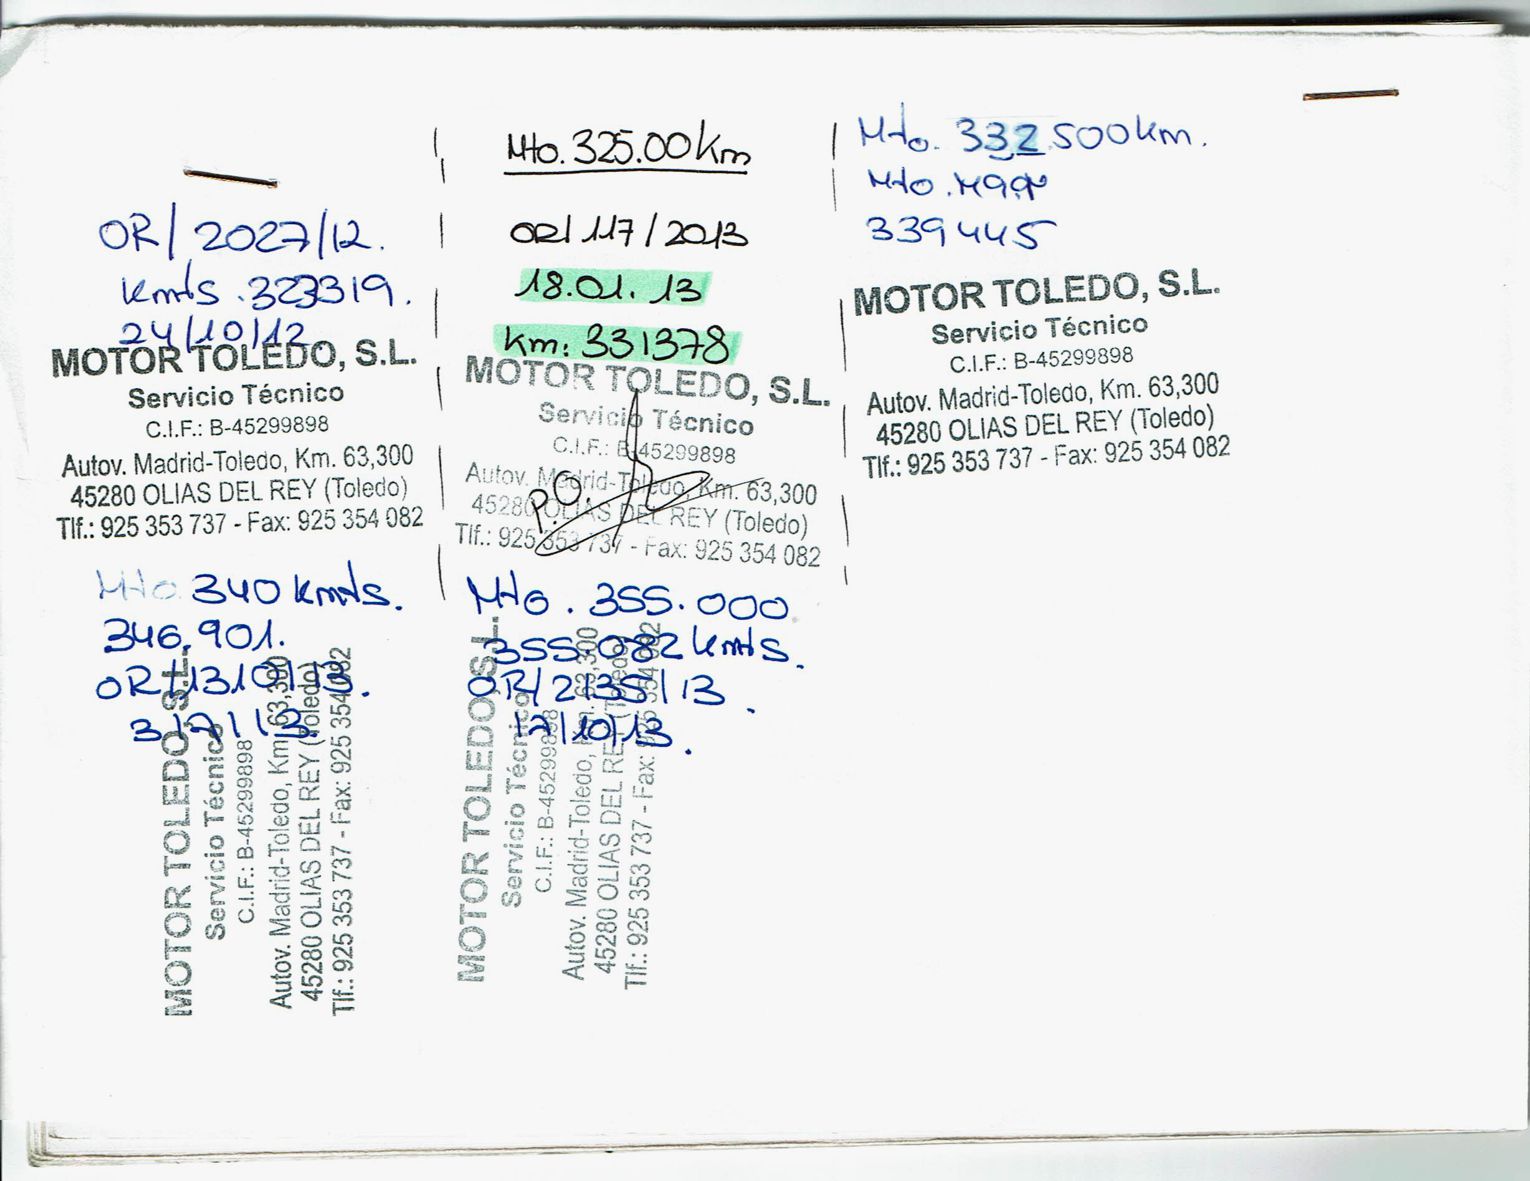 OR/2027/12.
Kmts.323319.
24/10/12
MOTOR TOLEDO, S.L.
Servicio Técnico
C.I.F.: B-45299898
Autov. Madrid-Toledo, Km. 63,300
45280 OLIAS DEL REY (Toledo)
Tlf.: 925 353 737 - Fax: 925 354 082
Mto. 325.00 Km
OR/117/2013
18.01.13
Km: 331378
MOTOR TOLEDO, S.L.
Servicio Técnico
C.I.F.: B-45299898
Autov. Madrid-Toledo, Km. 63,300
45280 OLIAS DEL REY (Toledo)
Tlf.: 925 353 737 - Fax: 925 354 082
P.O.
Mto. 332.500 km.
Mto.
339445
MOTOR TOLEDO, S.L.
Servicio Técnico
C.I.F.: B-45299898
Autov. Madrid-Toledo, Km. 63,300
45280 OLIAS DEL REY (Toledo)
Tlf.: 925 353 737 - Fax: 925 354 082
Mto. 340 Kmts.
346.901.
OR/1310/13.
3/7/13.
MOTOR TOLEDO, S.L.
Servicio Técnico
C.I.F.: B-45299898
Autov. Madrid-Toledo, Km. 63,300
45280 OLIAS DEL REY (Toledo)
Tlf.: 925 353 737 - Fax: 925 354 082
Mto. 355.000
355.082 Kmts.
OR/2135/13.
17/10/13.
MOTOR TOLEDO, S.L.
Servicio Técnico
C.I.F.: B-45299898
Autov. Madrid-Toledo, Km. 63,300
45280 OLIAS DEL REY (Toledo)
Tlf.: 925 353 737 - Fax: 925 354 082